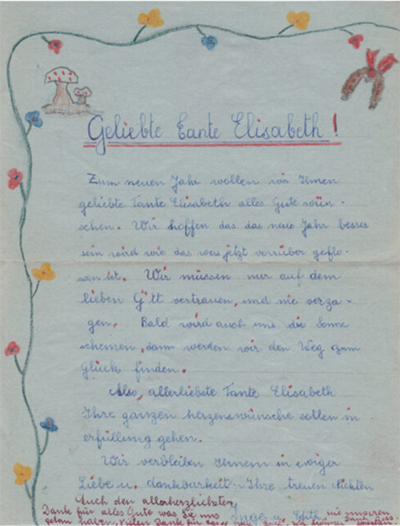 Geliebte Tante Elisabeth!
Zum neuen Jahr wollen wir Ihnen
geliebte Tante Elisabeth alles Gute wün-
schen. Wir hoffen das das neue Jahr besser
sein wird wie das was jetzt vorrüber geflo-
sen ist. Wir müssen nur auf dem
lieben Gott vertrauen, und nie verza-
gen. Bald wird auch uns die Sonne
scheinen, dann werden wir den Weg zum
Glück finden.
Also, allerliebste Tante Elisabeth
Ihre ganzen herzenswünsche sollen in
erfüllung gehen.
Wir verbleiben Ihnen in ewiger
Liebe u. dankbarkeit Ihre treuen
Auch den allerherzlichsten
Dank für alles Gute was Sie uns
getan haben. Vielen Dank für